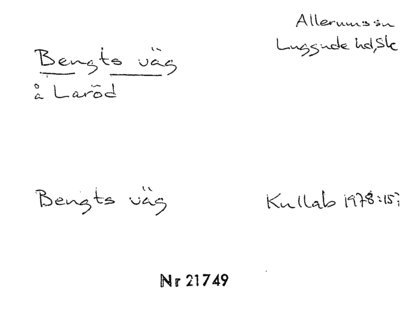 Bengts väg
å Laröd
Allerums sn
Luggude hd, Sk
Bengts väg
Kullab 1978:15;
Nr 21749